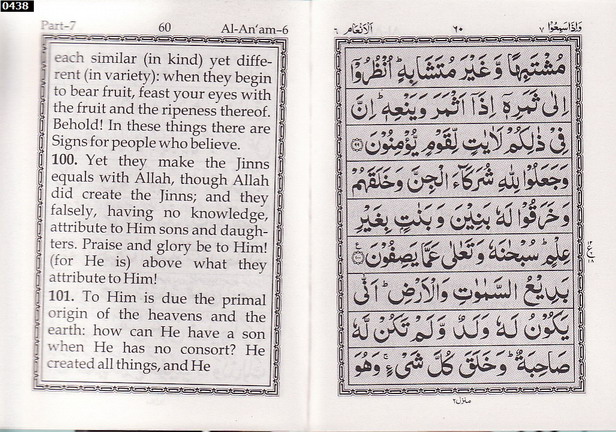 0438
Part-7 60 Al-An'am-6
each similar (in kind) yet diffe-
rent (in variety): when they begin
to bear fruit, feast your eyes with
the fruit and the ripeness thereof.
Behold! In these things there are
Signs for people who believe.
100. Yet they make the Jinns
equals with Allah, though Allah
did create the Jinns; and they
falsely, having no knowledge,
attribute to Him sons and daugh-
ters. Praise and glory be to Him!
(for He is) above what they
attribute to Him!
101. To Him is due the primal
origin of the heavens and the
earth: how can He have a son
when He has no consort? He
created all things, and He
وَاِذَا سَمِعُوْا ٧ ٦٠ اَلْاَنْعَام ٦
مُشْتَبِهًا وَّغَيْرَ مُتَشَابِهٍ ؕ اُنْظُرُوْۤا
اِلٰى ثَمَرِهٖۤ اِذَاۤ اَثْمَرَ وَيَنْعِهٖ ؕ اِنَّ
فِىْ ذٰلِكُمْ لَاٰيٰتٍ لِّقَوْمٍ يُّؤْمِنُوْنَ ٩٩
وَجَعَلُوْا لِلّٰهِ شُرَكَآءَ الْجِنَّ وَخَلَقَهُمْ
وَخَرَقُوْا لَهٗ بَنِيْنَ وَبَنٰتٍۢ بِغَيْرِ
عِلْمٍ ؕ سُبْحٰنَهٗ وَتَعٰلٰى عَمَّا يَصِفُوْنَ ١٠٠
بَدِيْعُ السَّمٰوٰتِ وَالْاَرْضِ ؕ اَنّٰى
يَكُوْنُ لَهٗ وَلَدٌ وَّلَمْ تَكُنْ لَّهٗ
صَاحِبَةٌ ؕ وَخَلَقَ كُلَّ شَىْءٍ ۚ وَهُوَ
منزل ٢